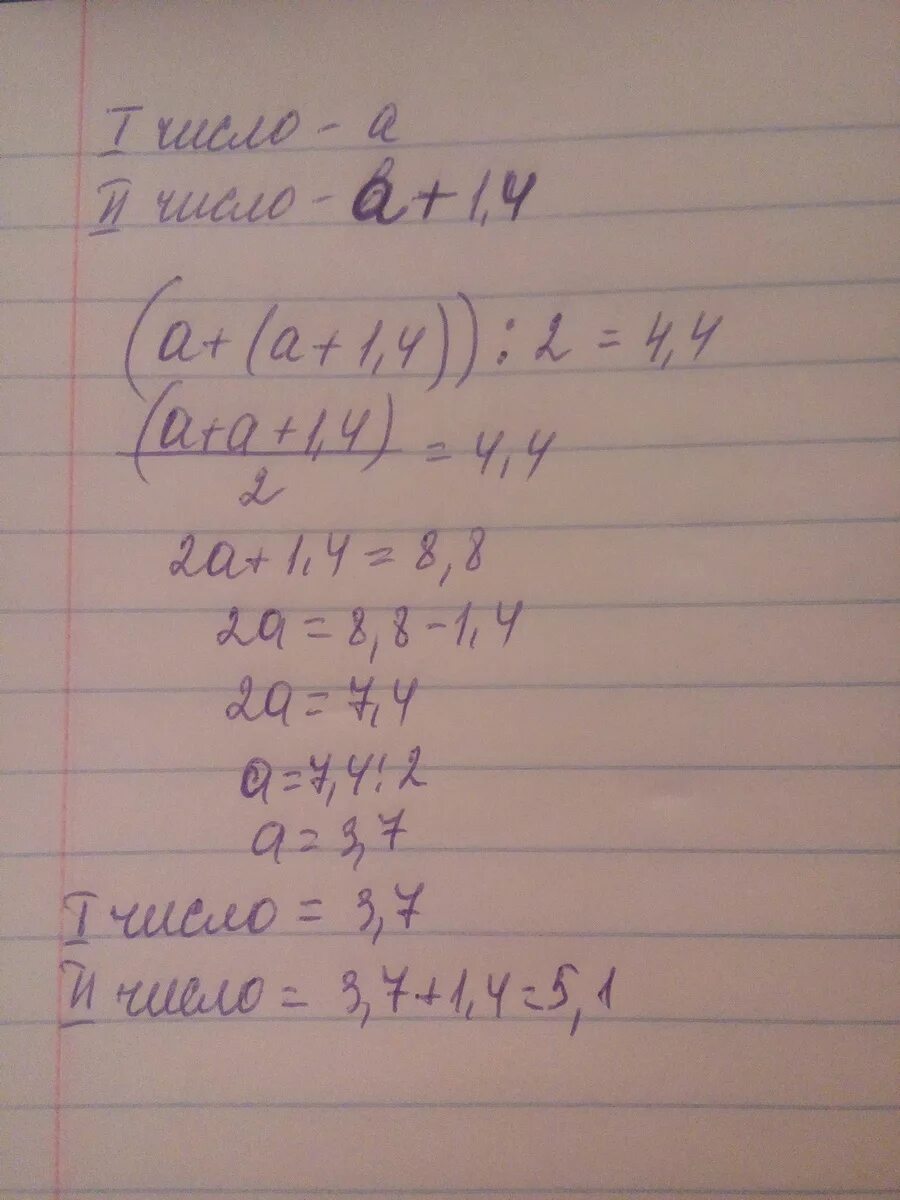 I число - а
II число - а + 1,4
(а + (а + 1,4)) : 2 = 4,4
(а + а + 1,4)
2
= 4,4
2а + 1,4 = 8,8
2а = 8,8 - 1,4
2а = 7,4
а = 7,4 : 2
а = 3,7
I число = 3,7
II число = 3,7 + 1,4 = 5,1